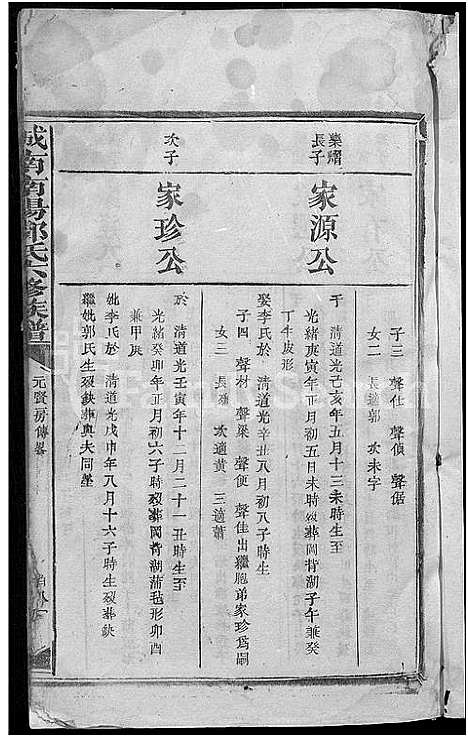 子三 聲仕 聲偵 聲倨
女二 長適郭 次未字
樂爝
長子
家源公
于 清道光己亥年五月十三未時生至
光緒庚寅年正月初五日未時殁葬岡背湖子午兼癸
丁牛皮形
娶李氏於 清道光辛丑八月初八子時生
子四 聲材 聲梁 聲便 聲佳出繼胞弟家珍爲嗣
女三 長殤 次適黃 三適蕭
次子
家珍公
於 清道光壬寅年十二月二十一丑時生至
光緒癸卯年正月初六子時殁葬岡背湖蒲毡形卯酉
兼甲庚
妣李氏於 清道光戊申年八月十六子時生殁葬缺
繼妣郭氏生殁缺葬與夫同塋
城南南陽郭氏六修族譜
元啓房傳畧